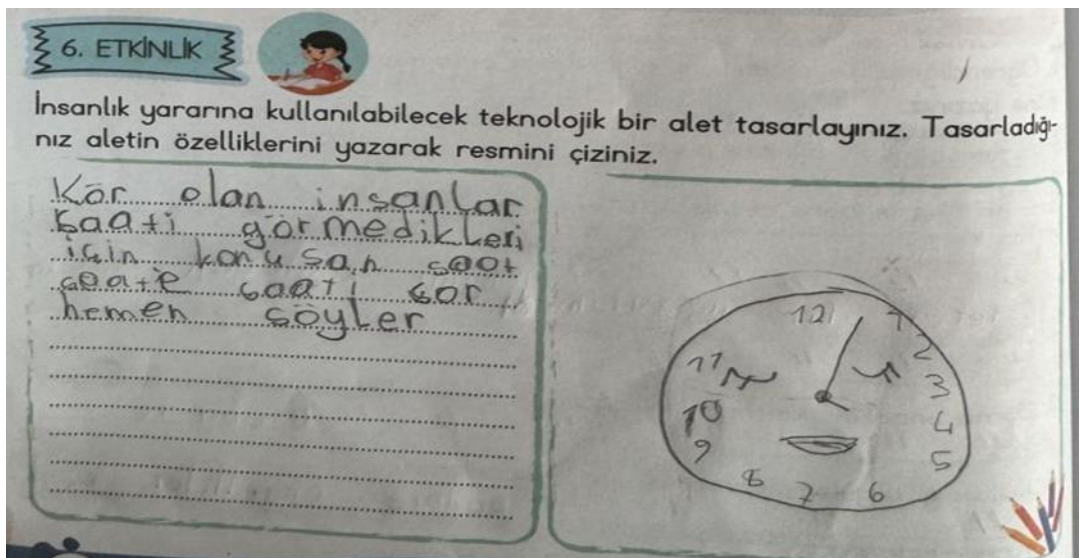 6. ETKİNLİK
İnsanlık yararına kullanılabilecek teknolojik bir alet tasarlayınız. Tasarladığı-
nız aletin özelliklerini yazarak resmini çiziniz.
Kör olan insanlar
saati görmedikleri
için konuşan saat
saate saati sor
hemen söyler
12 1
2
3
4
5
6
7
8
9
10
11